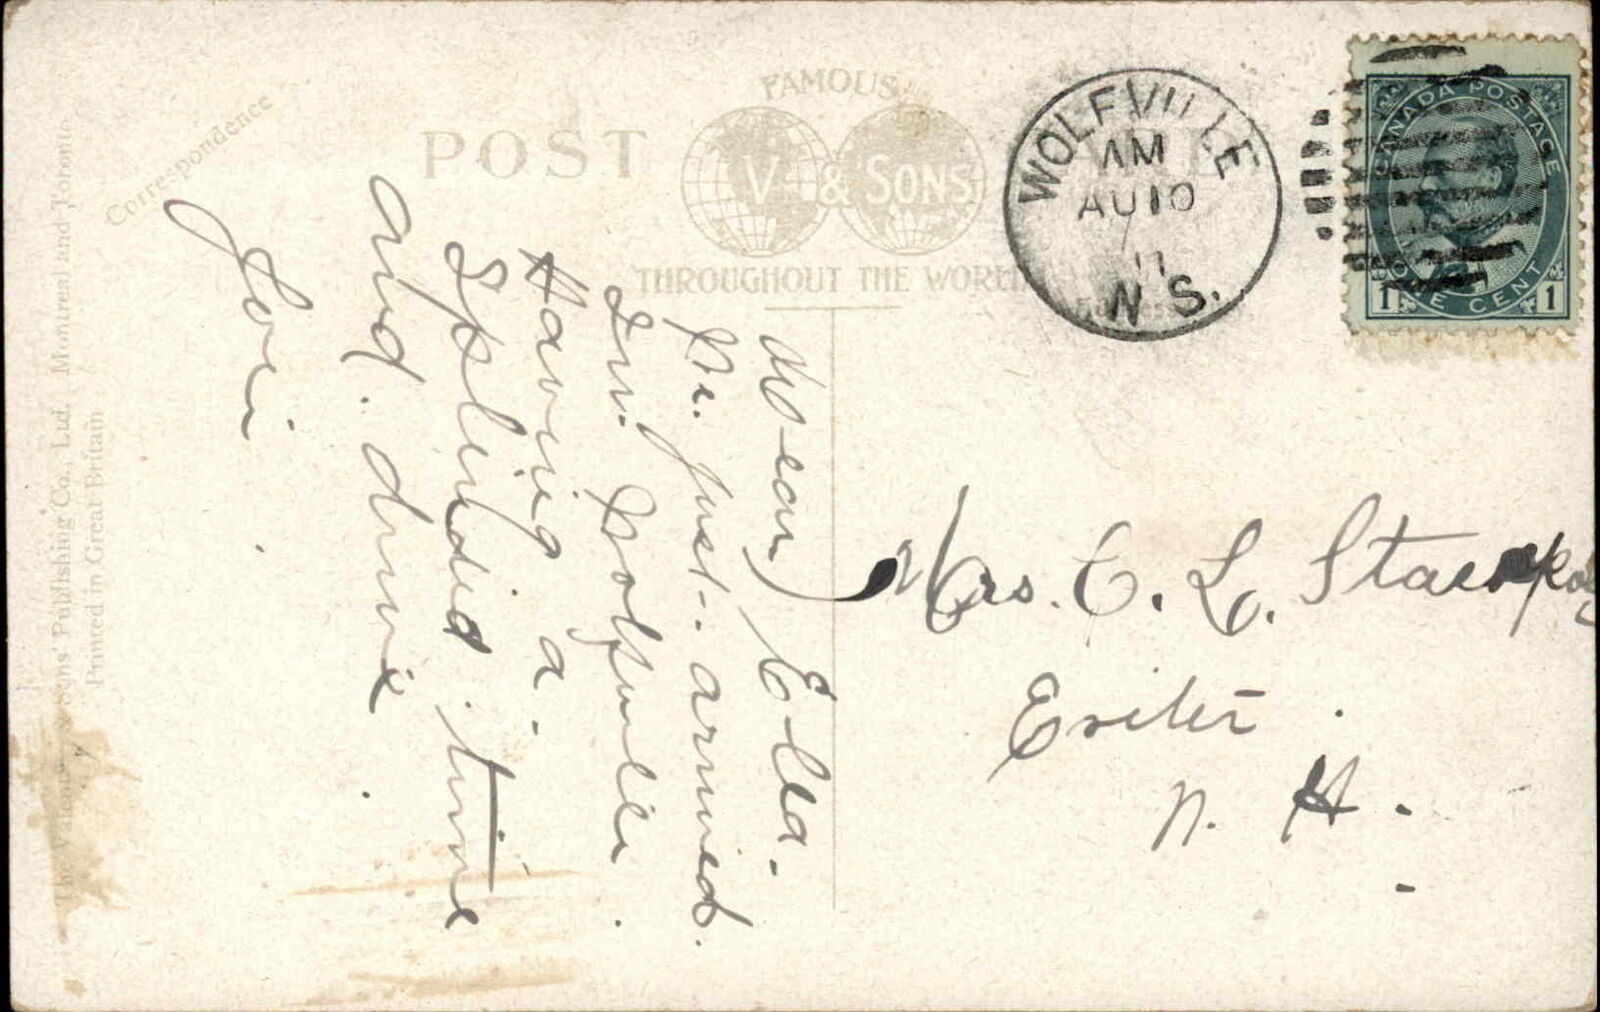 FAMOUS
POST
V & SONS
THROUGHOUT THE WORLD
WOLFVILLE
AM
AU 10
11
N.S.
CANADA POSTAGE
1 ONE CENT 1
Correspondence
The Valentine & Sons' Publishing Co., Ltd. Montreal and Toronto
Printed in Great Britain
Dear Ella.
Just arrived.
in Wolfville.
Having a
Splendid time
and
Mrs. C. L.
Exeter
N. H.